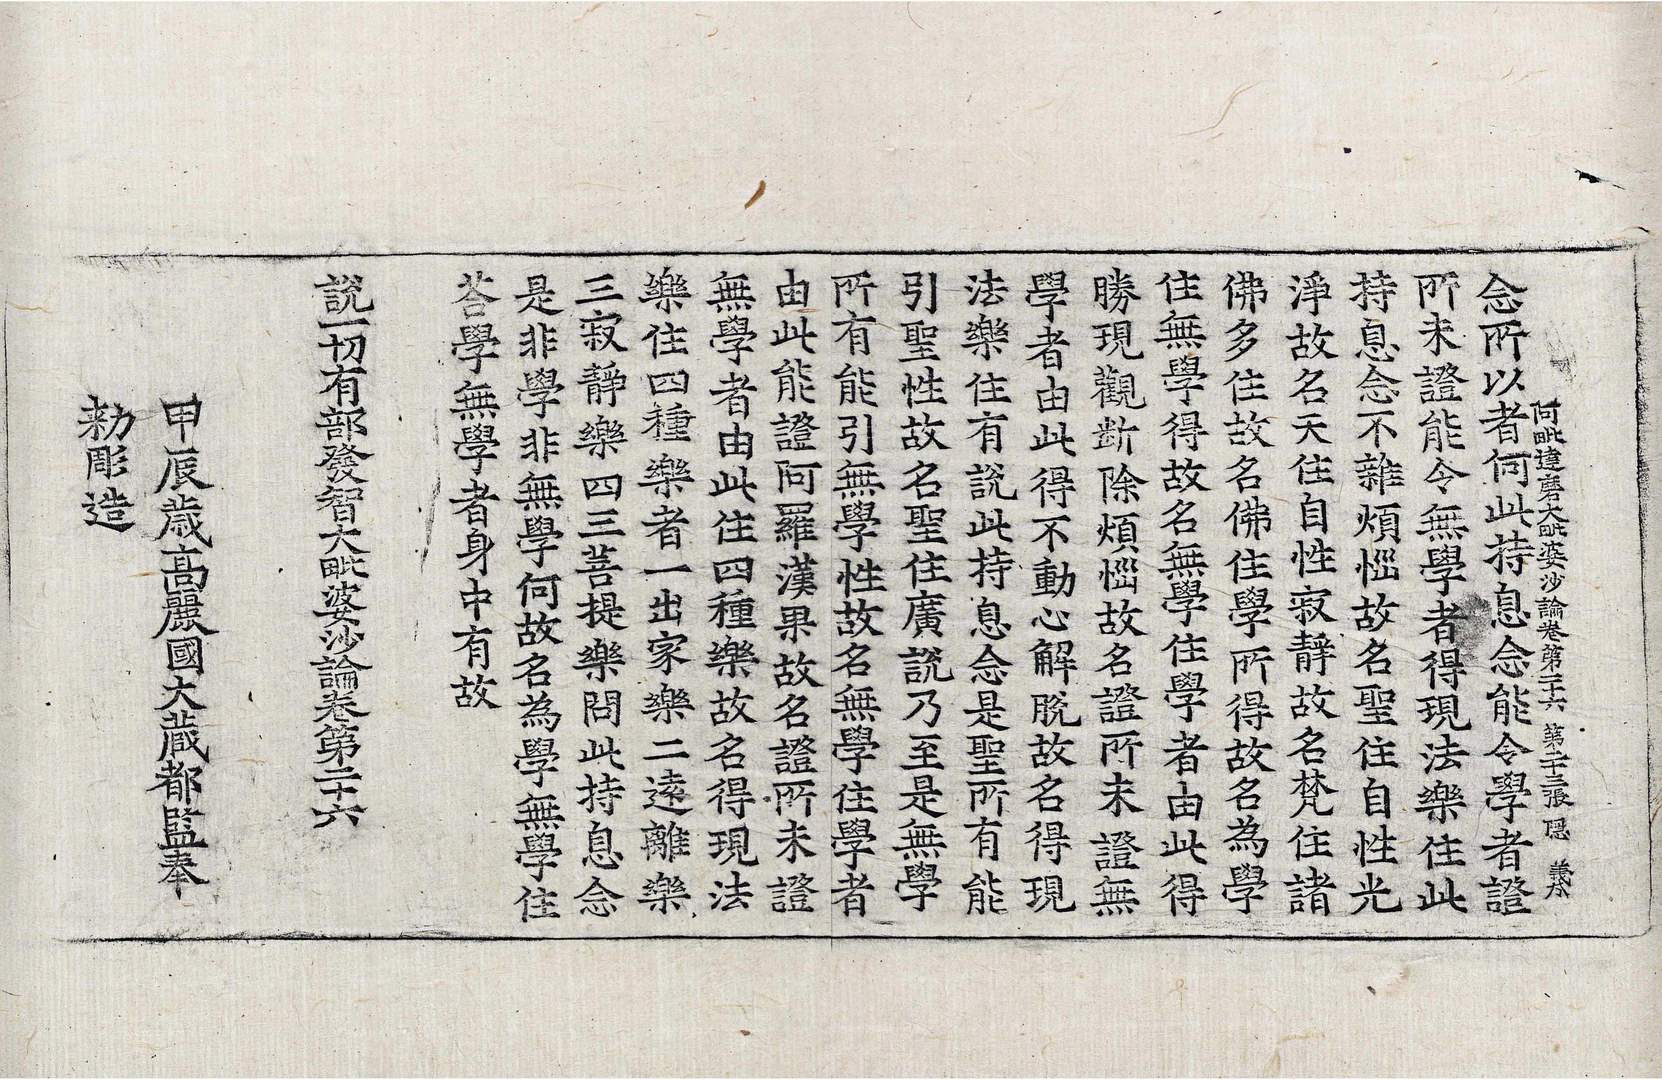 阿毗達磨大毗婆沙論卷第二十六　第二十三張　隱　義夲
念所以者何此持息念能令學者證
所未證能令無學者得現法樂住此
持息念不雜煩惱故名聖住自性光
淨故名天住自性寂靜故名梵住諸
佛多住故名佛住學所得故名為學
住無學得故名無學住學者由此得
勝現觀斷除煩惱故名證所未證無
學者由此得不動心解脫故名得現
法樂住有說此持息念是聖所有能
引聖性故名聖住廣說乃至是無學
所有能引無學性故名無學住學者
由此能證阿羅漢果故名證所未證
無學者由此住四種樂故名得現法
樂住四種樂者一出家樂二遠離樂
三寂靜樂四三菩提樂問此持息念
是非學非無學何故名為學無學住
荅學無學者身中有故
說一切有部發智大毗婆沙論卷第二十六
甲辰歲高麗國大藏都監奉
勑彫造